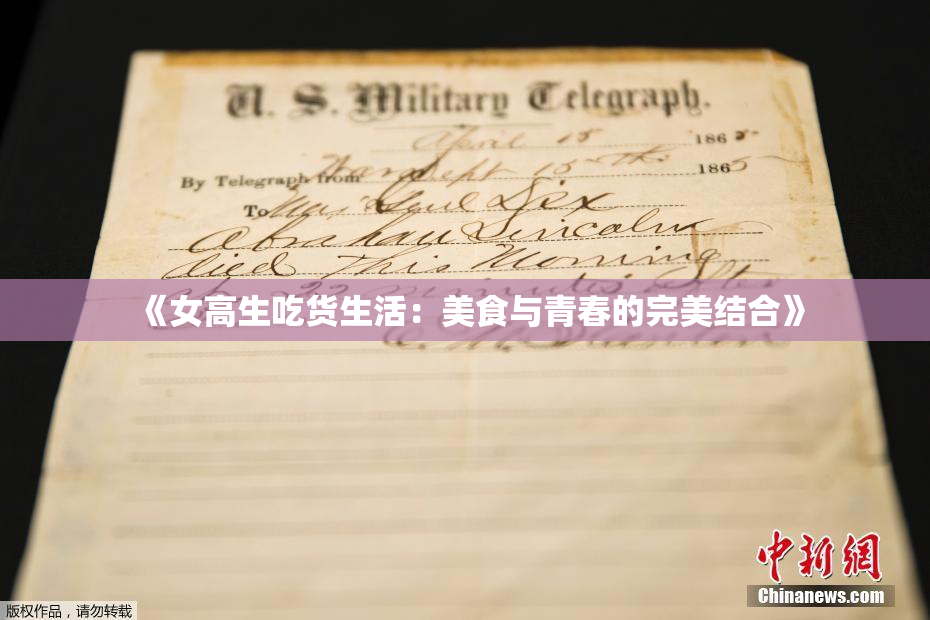 U. S. Military Telegraph.
April 15 1865
By Telegraph from War Dept 15th 1865
To Maj Genl Dix
Abraham Lincoln
died This Morning
at 22 minutes after
《女高生吃货生活：美食与青春的完美结合》
E. M. Stanton
中新网
Chinanews.com
版权作品，请勿转载